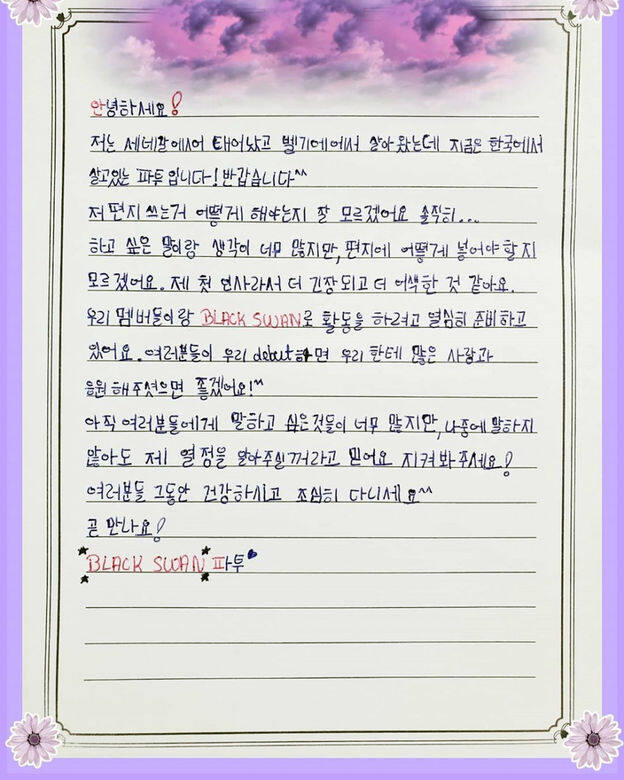 안녕하세요!
저는 세네갈에서 태어났고 벨기에에서 살아왔는데 지금은 한국에서
살고있는 파투입니다! 반갑습니다^^
저 편지 쓰는거 어떻게 해야는지 잘 모르겠어요 솔직히...
하고 싶은 말이랑 생각이 너무 많지만, 편지에 어떻게 넣어야 할지
모르겠어요. 제 첫 인사라서 더 긴장되고 더 어색한 것 같아요.
우리 멤버들이랑 BLACK SWAN로 활동을 하려고 열심히 준비하고
있어요. 여러분들이 우리 debut하면 우리 한테 많은 사랑과
응원 해주셧으면 좋겠어요!^^
아직 여러분들에게 말하고 싶은것들이 너무 많지만, 나중에 말하지
않아도 제 열정을 알아주실꺼라고 믿어요 지켜봐주세요!
여러분들 그동안 건강하시고 조심히 다니세요^^
곧 만나요!
BLACK SWAN 파투